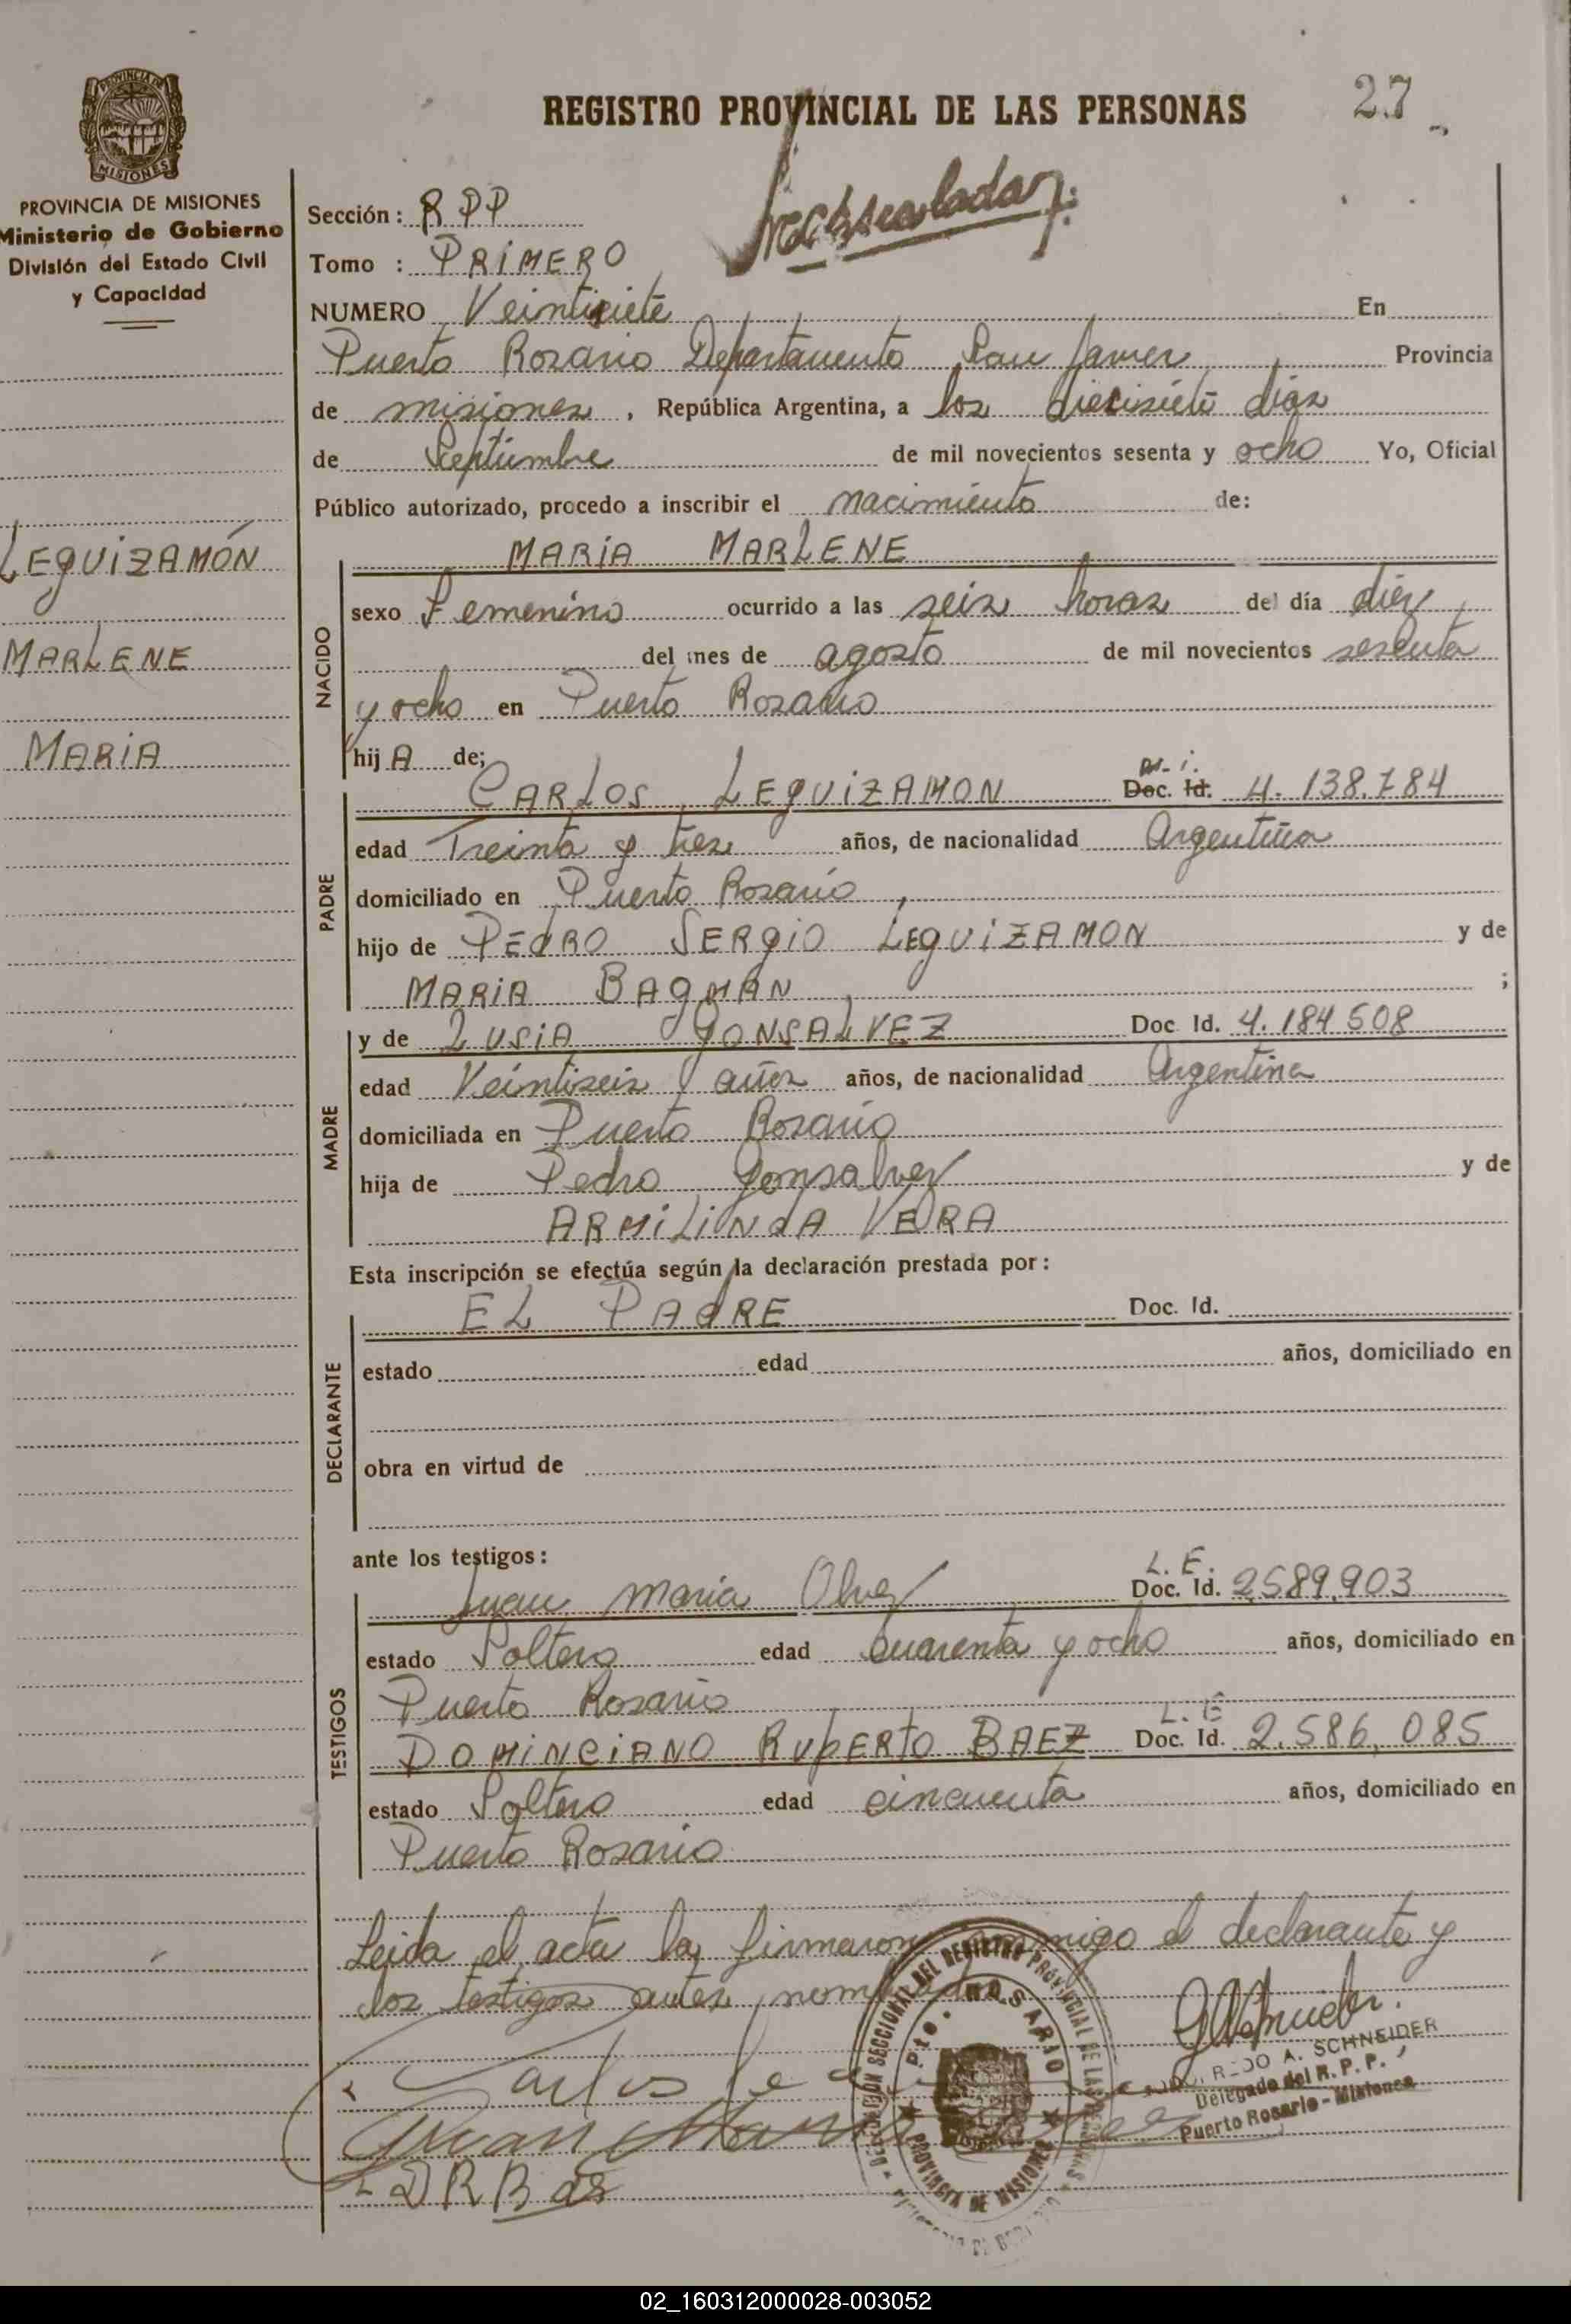 REGISTRO PROVINCIAL DE LAS PERSONAS
27
PROVINCIA DE MISIONES
MISIONES
PROVINCIA DE MISIONES
Ministerio de Gobierno
División del Estado Civil
y Capacidad
LEGUIZAMÓN
MARLENE
MARIA
Sección: RPP
Tomo : PRIMERO
NUMERO Veintisiete En
Puerto Rosario Departamento San Javier Provincia
de misiones, República Argentina, a los diecisiete dias
de Septiembre de mil novecientos sesenta y ocho Yo, Oficial
Público autorizado, procedo a inscribir el nacimiento de:
MARIA MARLENE
NACIDO
sexo Femenino ocurrido a las seis horas del día diez
del mes de agosto de mil novecientos sesenta
y ocho en Puerto Rosario
hijA de;
PADRE
CARLOS LEGUIZAMON Doc. Id. 4.138.784
edad Treinta y tres años, de nacionalidad Argentina
domiciliado en Puerto Rosario
hijo de PEdRO SERGIO LEGUIZAMON y de
MARIA BAGMAN ;
MADRE
y de LUSIA GONSALVEZ Doc Id. 4.184.508
edad Veintiseis años años, de nacionalidad Argentina
domiciliada en Puerto Rosario
hija de Pedro Gonsalvez y de
ARMiLiNdA VERA
Esta inscripción se efectúa según la declaración prestada por:
DECLARANTE
EL PAdRE Doc. Id.
estado edad años, domiciliado en
obra en virtud de
ante los testigos:
TESTIGOS
L. E.
Juan Maria Olvez Doc. Id. 2,589,903
estado Soltero edad cuarenta y ocho años, domiciliado en
Puerto Rosario
L. E
DOMINCIANO RUbERTO BAEZ Doc. Id. 2.586,085
estado Soltero edad cincuenta años, domiciliado en
Puerto Rosario
Leida el acta la firmaron conmigo el declarante y
los testigos antes nombrados
Carlos
Juan
DRB
Pto. ROSARIO
PROVINCIA DE MISIONES
A. SCHNEIDER
Delegado del R. P. P.
Puerto Rosario - Misiones
02_160312000028-003052